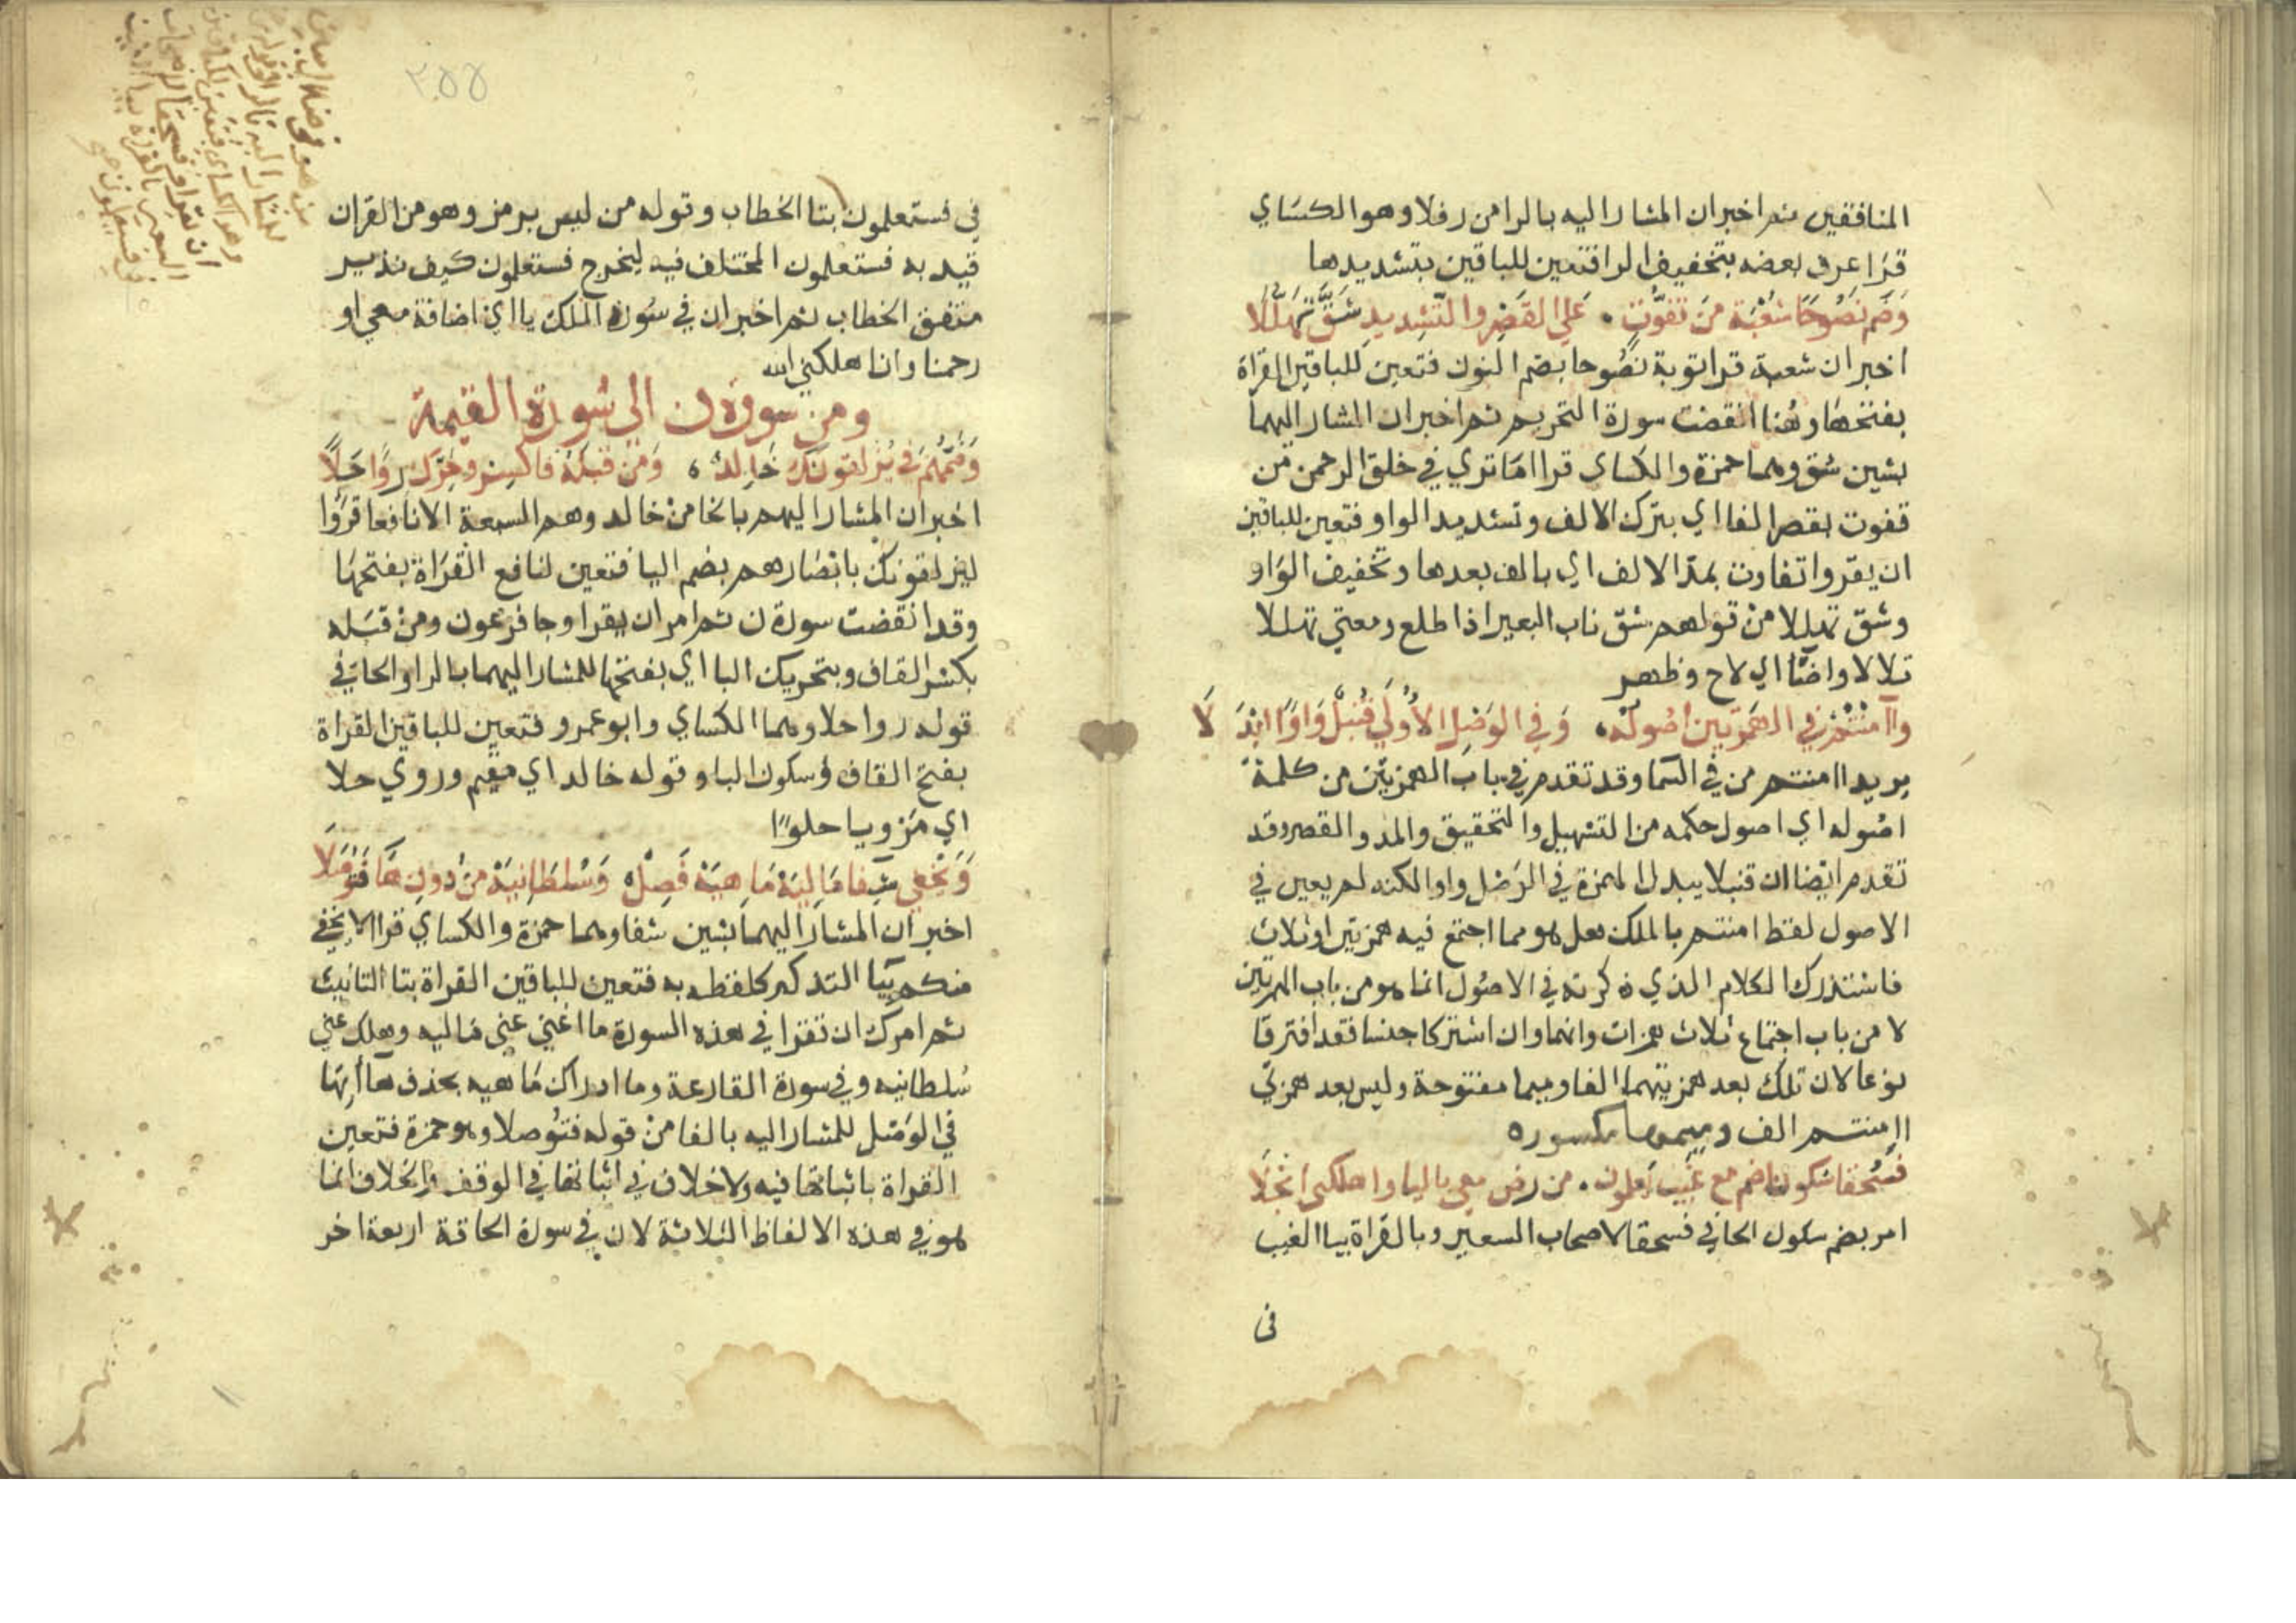 المنافقين ثم اخبر ان المشار اليه بالرا من رفلا وهو الكساي
قرا عرف بعضه بتخفيف الرا فتعين للباقين بتشديدها
وَضَم نَصُوحًا شُعْبَة مَن تفوُّتٍ . عَلي القَصْر والتّشديد شَقَّ تَهَلُّلَا
اخبر ان شعبة قرا توبة نصُوحا بضم النون فتعين للباقين القراة
بفتحها وهُنا انقضت سورة التحريم ثم اخبر ان المشار اليهما
بشين شق وهما حمزة والكساي قرا ما تري في خلق الرحمن من
تفوت بقصر الفا اي بترك الالف وتشديد الواو فتعين للباقين
ان يقروا تفاوت بمدّ الالف اي بالف بعدها وتخفيف الوَاو
وشق تهللا منْ قولهم شق ناب البعير اذا طلع ومعني تهللا
تلالا واضَّا اي لاح وظهر
وآامنْتُمُ في الهَمزتين اصُوله، وَفي الوَصْل الأُولَي قُنْبلٌ وَاوًا ابْدَلَا
يريد اامنتم من في السما وقد تقدم في باب الهمزتين من كلمة
اصُوله اي اصول حكمه من التسهيل والتحقيق والمد والقصر وقد
تقدم ايضا ان قنبلا يبدل الهمزة في الوَصْل واوا لكنه لم يعين في
الاصول لفظ امنتم بالملك هل هو مما اجتمع فيه همزتين او ثلاث
فاستدرك الكلام الذي ذكرته في الاصُول انما هو من باب الهمزتين
لا من باب اجتماع ثلاث همزات وانهما وان اشتركا جنسا فقد افترقا
نوعا لان تلك بعد همزتيهما الفا وميما مفتوحة وليس بعد همزتي
اامنتم الف وميمها مكسوره
فَسُحقا سُكونا ضم مع غَيْب يَعلمون . من رُض معي باليا واهلكني انجَلَا
امر بضم سكون الحا في فسحقا لاصحاب السعير وبالقراة بيا الغيب
في
٢٥٥
في فستعلمون بتا الخطاب وقوله من ليس برمز وهو من القران
قيد به فستعلمون المختلف فيه ليخرج فستعلمون كيف نذير
متفق الخطاب ثم اخبر ان في سُورة الملك يا اي اضافة معي او
رحمنا وان اهلكني الله
ومن سورة ن الي سُورة القيمة
وَضَمُّهُمُ في يُزْلقونَكَ خَالِدٌ ، وَمَن قَبْلَهُ فاكسِر وحَرّك رِوًا حَلَا
اخبر ان المشار اليهم بالخا منْ خالد وهم السبعة الا نافعا قرَوُا
ليزلقونك بابْصَارهم بضم اليا فتعين لنافع القرَاة بفتحهَا
وقد انقضت سورة ن ثم امر ان يقرا وجا فرعون ومنْ قبَله
بكسْر القاف وبتحريك البا اي بفتحها للمشار اليهما بالرا والحا في
قوله روا حلا وهما الكساي وابو عمرو فتعين للباقين القراة
بفتح القاف وسكون البا وقوله خالد اي مقيم وروي حلا
اي مَرْويا حلوًا
وَيَخْفي شِفا مَالِيَهْ مَا هِيَهْ فَصِلْ ، وَسُلطَانِيَهْ منْ دُونِ هَا فَتُوصَلَا
اخبر ان المشار اليهما بشين شفا وهما حمزة والكساي قرا لا يخفي
منكم بيا التذكير كلفظه به فتعين للباقين القراة بتا التانيث
ثم امرك ان تقرا في هذه السورة ما اغني عني مَاليه وهلك عني
سُلطانيه وفي سورة القارعة وما ادراك مَا هيه بحذف هَاآتهَا
في الوَصْل للمشار اليه بالفا منْ قوله فتُوصلا وهو حمزة فتعين
القراة باثباتها فيه ولا خلاف في اثباتها في الوقف والخلاف انما
هو في هذه الالفاظ الثلاثة لان في سورة الحاقة اربعة اخر